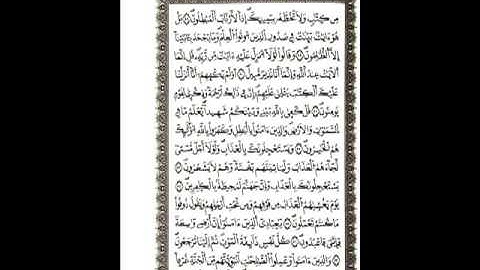 مِن كِتَٰبٍ وَلَا تَخُطُّهُۥ بِيَمِينِكَ إِذًا لَّٱرْتَابَ ٱلْمُبْطِلُونَ ۝ بَلْ
هُوَ ءَايَٰتٌۢ بَيِّنَٰتٌ فِى صُدُورِ ٱلَّذِينَ أُوتُوا۟ ٱلْعِلْمَ وَمَا يَجْحَدُ بِـَٔايَٰتِنَآ
إِلَّا ٱلظَّٰلِمُونَ ۝ وَقَالُوا۟ لَوْلَآ أُنزِلَ عَلَيْهِ ءَايَٰتٌ مِّن رَّبِّهِۦ قُلْ إِنَّمَا
ٱلْءَايَٰتُ عِندَ ٱللَّهِ وَإِنَّمَآ أَنَا۠ نَذِيرٌ مُّبِينٌ ۝ أَوَلَمْ يَكْفِهِمْ أَنَّآ أَنزَلْنَا
عَلَيْكَ ٱلْكِتَٰبَ يُتْلَىٰ عَلَيْهِمْ إِنَّ فِى ذَٰلِكَ لَرَحْمَةً وَذِكْرَىٰ لِقَوْمٍ
يُؤْمِنُونَ ۝ قُلْ كَفَىٰ بِٱللَّهِ بَيْنِى وَبَيْنَكُمْ شَهِيدًا يَعْلَمُ مَا فِى
ٱلسَّمَٰوَٰتِ وَٱلْأَرْضِ وَٱلَّذِينَ ءَامَنُوا۟ بِٱلْبَٰطِلِ وَكَفَرُوا۟ بِٱللَّهِ أُو۟لَٰٓئِكَ
هُمُ ٱلْخَٰسِرُونَ ۝ وَيَسْتَعْجِلُونَكَ بِٱلْعَذَابِ وَلَوْلَآ أَجَلٌ مُّسَمًّى
لَّجَآءَهُمُ ٱلْعَذَابُ وَلَيَأْتِيَنَّهُم بَغْتَةً وَهُمْ لَا يَشْعُرُونَ ۝
يَسْتَعْجِلُونَكَ بِٱلْعَذَابِ وَإِنَّ جَهَنَّمَ لَمُحِيطَةٌۢ بِٱلْكَٰفِرِينَ ۝
يَوْمَ يَغْشَىٰهُمُ ٱلْعَذَابُ مِن فَوْقِهِمْ وَمِن تَحْتِ أَرْجُلِهِمْ وَيَقُولُ ذُوقُوا۟
مَا كُنتُمْ تَعْمَلُونَ ۝ يَٰعِبَادِىَ ٱلَّذِينَ ءَامَنُوٓا۟ إِنَّ أَرْضِى وَٰسِعَةٌ
فَإِيَّٰىَ فَٱعْبُدُونِ ۝ كُلُّ نَفْسٍ ذَآئِقَةُ ٱلْمَوْتِ ثُمَّ إِلَيْنَا تُرْجَعُونَ
۝ وَٱلَّذِينَ ءَامَنُوا۟ وَعَمِلُوا۟ ٱلصَّٰلِحَٰتِ لَنُبَوِّئَنَّهُم مِّنَ ٱلْجَنَّةِ غُرَفًا